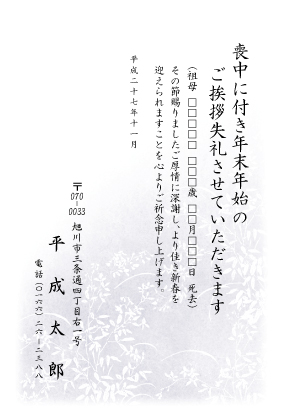 喪中に付き年末年始の
ご挨拶失礼させていただきます
(祖母 □□□□ □□□歳 □□月□□□日 死去)
その節賜りましたご厚情に深謝し、より佳き新春を
迎えられますことを心よりご祈念申し上げます。
平成二十七年十一月
〒070-0033
旭川市三条通四丁目右一号
平成太郎
電話(〇一六六)二六-二三八八